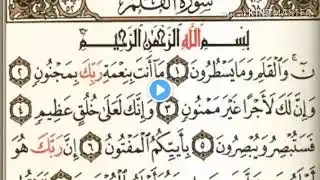 سُورَةُ القَلَمِ
بِسْمِ اللَّهِ الرَّحْمَٰنِ الرَّحِيمِ
نٓ ۚ وَالْقَلَمِ وَمَا يَسْطُرُونَ ١ مَا أَنتَ بِنِعْمَةِ رَبِّكَ بِمَجْنُونٍ ٢
وَإِنَّ لَكَ لَأَجْرًا غَيْرَ مَمْنُونٍ ٣ وَإِنَّكَ لَعَلَىٰ خُلُقٍ عَظِيمٍ ٤
فَسَتُبْصِرُ وَيُبْصِرُونَ ٥ بِأَييِّكُمُ الْمَفْتُونُ ٦ إِنَّ رَبَّكَ هُوَ